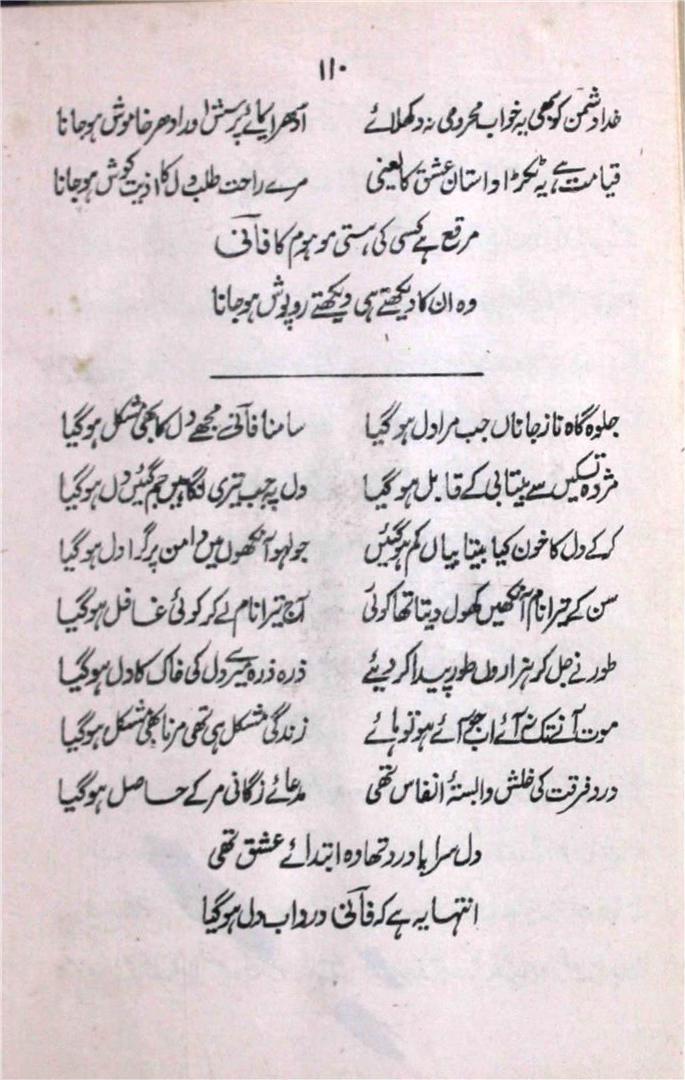 ۱۱۰
خدا دشمن کو بھی یہ خواب محرومی نہ دکھلائے ادھر ایمائے پرسش اور ادھر خاموش ہو جانا
قیامت ہے یہ ٹکڑا داستان عشق کا یعنی مرے راحت طلب دل کا اذیت کوش ہو جانا
مرقع ہے کسی کی ہستی موہوم کا فانی
وہ ان کا دیکھتے ہی دیکھتے روپوش ہو جانا
جلوہ گاہ ناز جاناں جب مرا دل ہو گیا سامنا فانی مجھے دل کا بھی مشکل ہو گیا
مژدہ تسکیں سے بیتابی کے قابل ہو گیا دل پہ جب تیری نگاہیں جم گئیں دل ہو گیا
کر کے دل کا خون کیا بیتابیاں کم ہو گئیں جو لہو آنکھوں میں دامن پر گرا دل ہو گیا
سن کے تیرا نام آنکھیں کھول دیتا تھا کوئی آج تیرا نام لے کر کوئی غافل ہو گیا
طور نے جل کر ہزاروں طور پیدا کر دیئے ذرہ ذرہ میرے دل کی خاک کا دل ہو گیا
موت آنے تک نہ آئے اب جو آئے ہو تو ہائے زندگی مشکل ہی تھی مرنا بھی مشکل ہو گیا
درد فرقت کی خلش وابستۂ انفاس تھی مدعائے زندگانی مر کے حاصل ہو گیا
دل سراپا درد تھا وہ ابتدائے عشق تھی
انتہا یہ ہے کہ فانی درد اب دل ہو گیا